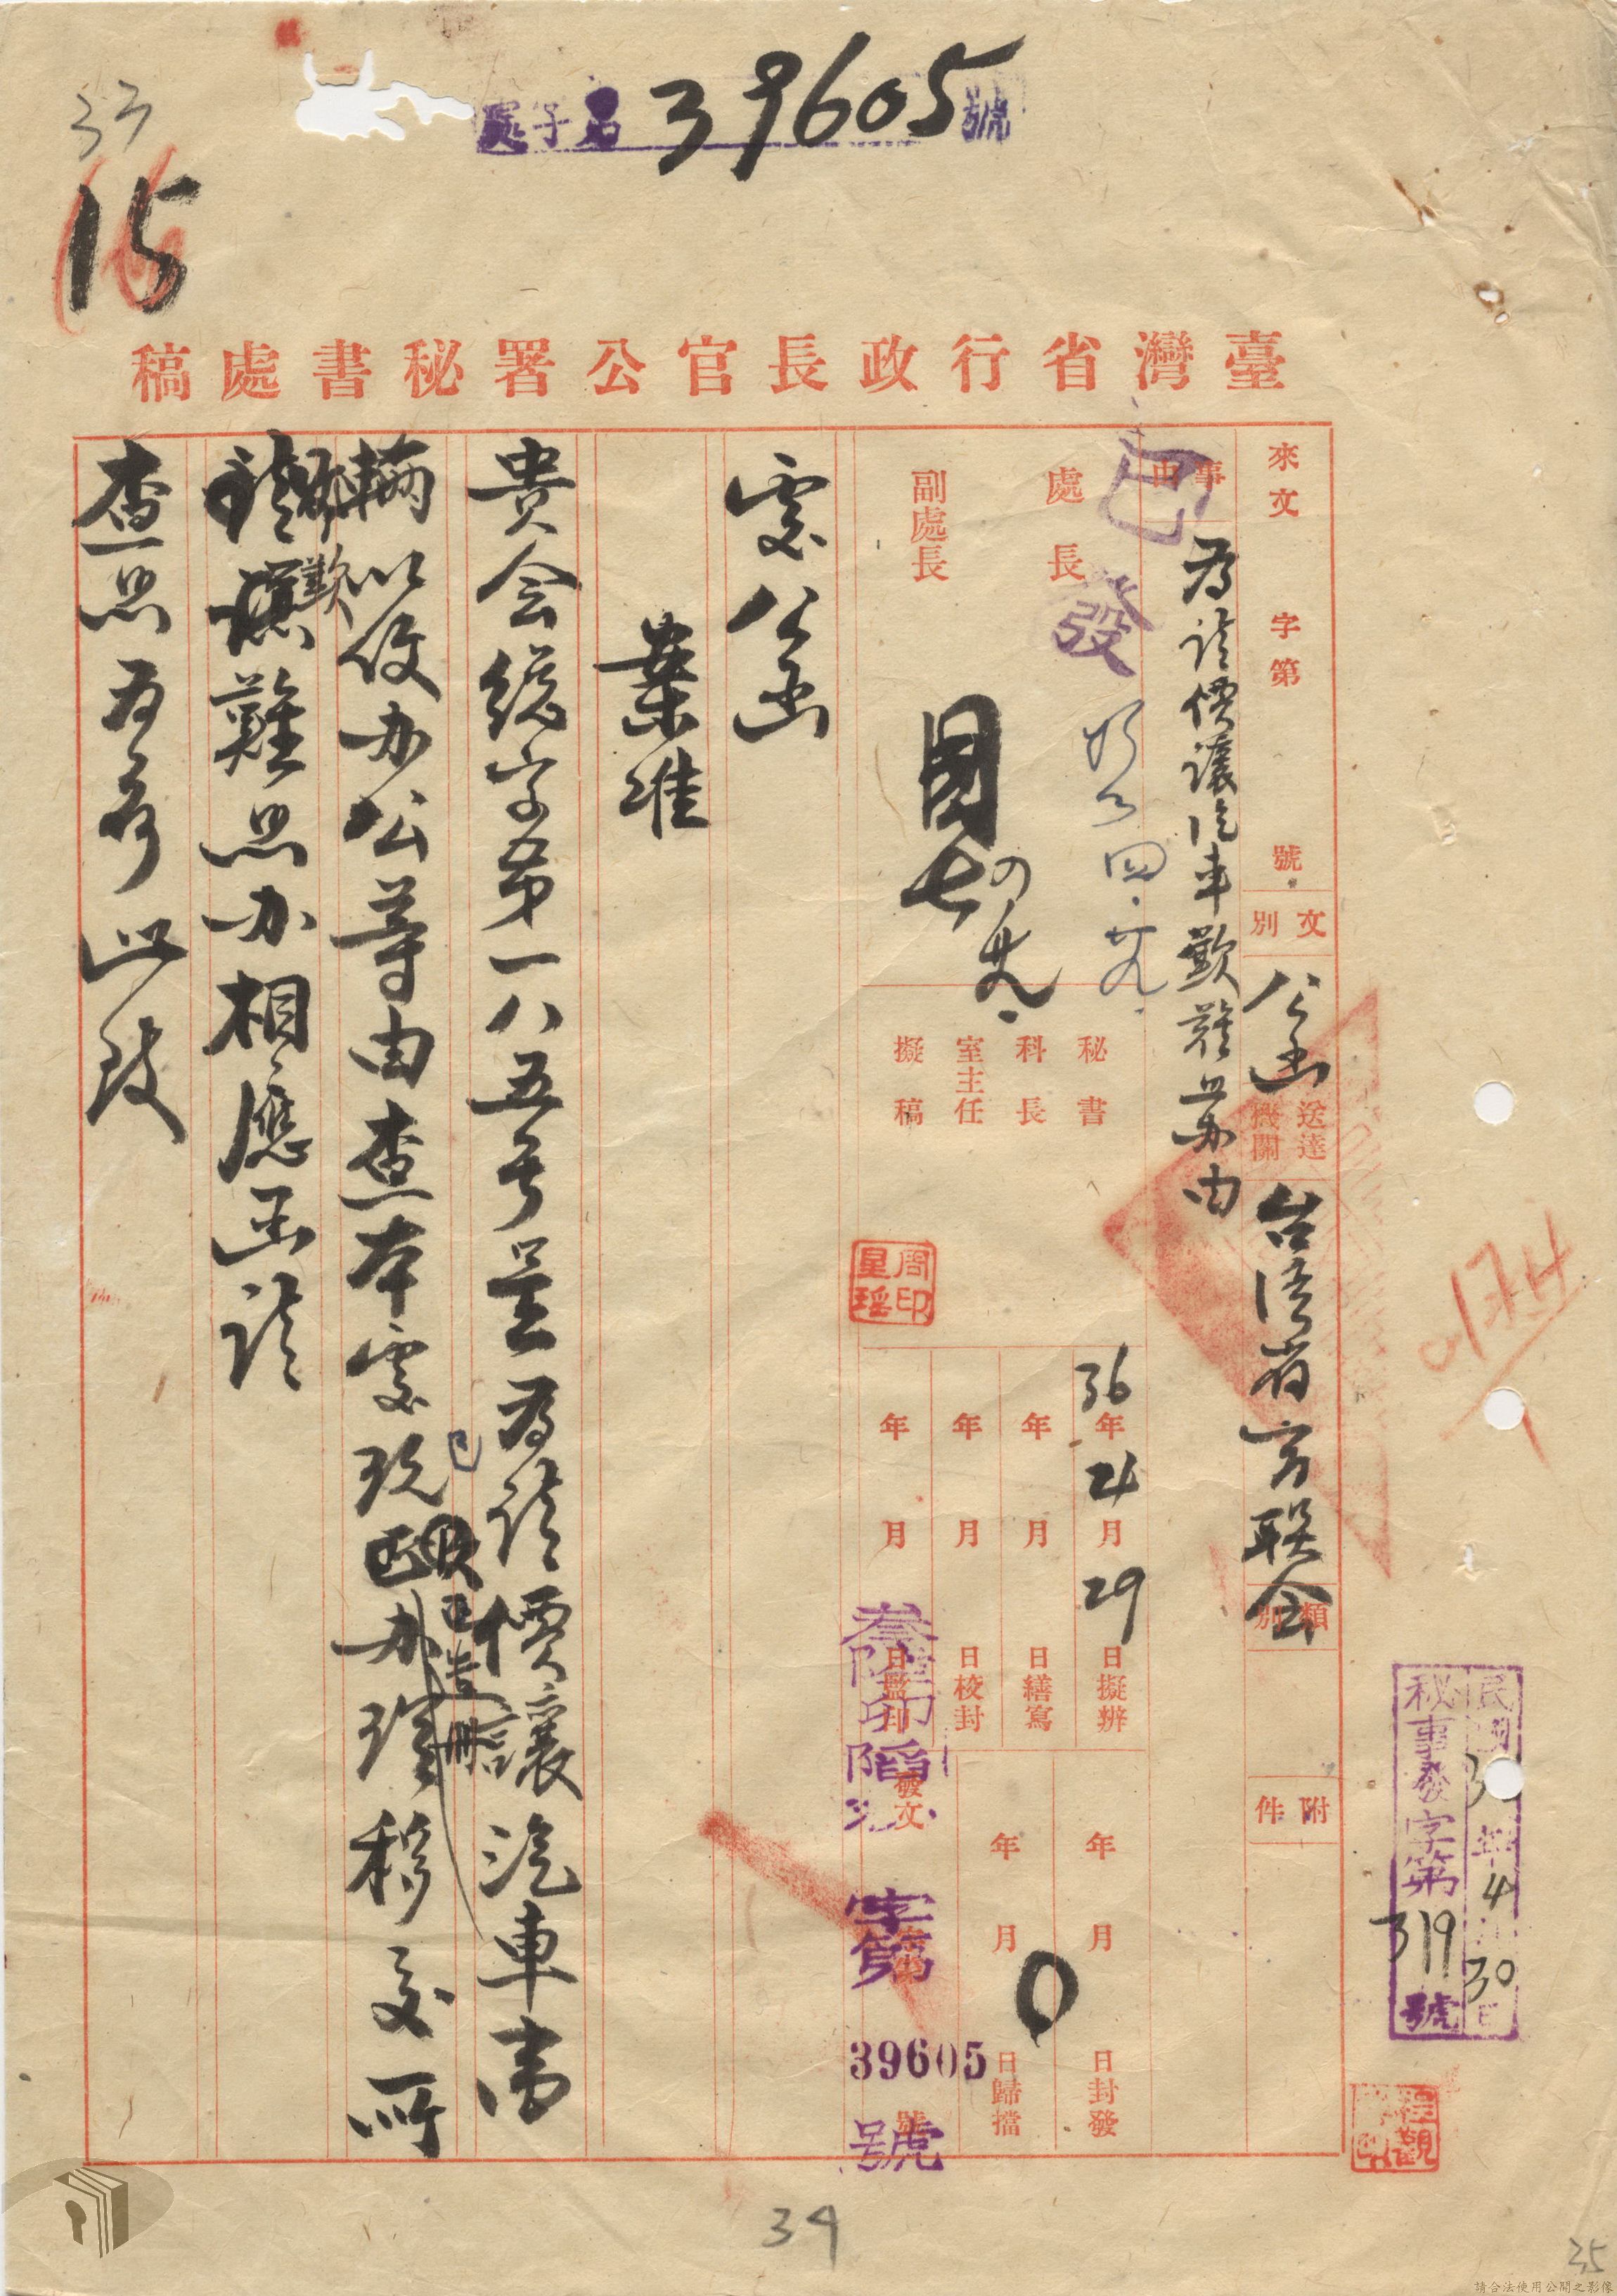 處字號39605號
37
15
臺灣省行政長官公署秘書處稿
來文 字第 號
文別 公函
送達機關 台灣省商联会
類別
附件
事由 為請價讓汽車歉難照办由
處長
副處長
已發
四‧廿九
秘書
科長
室主任
擬稿
周印星瑤
36年4月29日擬辦
年 月 日繕寫
年 月 日校封
年 月 日監印
年 月 日封發
年 月 日歸檔
發文 字第39605號
處公函
案准
貴会總字第一八五号呈為請價讓汽車壹
輛以便办公等由查本處現已造冊办理移交所
請歉難照办相應函請
查照為荷此致
民國36年4月30日
秘事發字第319號
34
35
請合法使用公開之影像